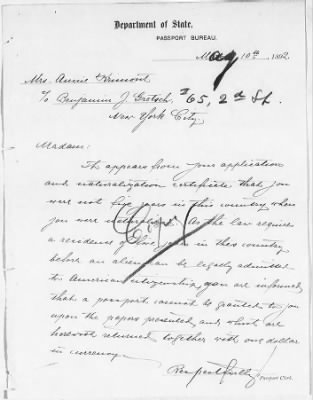 Department of State.
PASSPORT BUREAU.
May 10th 1892.
Mrs. Annie
c/o Benjamin J. Gretsch, #65, 2nd St.
New York City.
Madam:
It appears from your application
and naturalization certificate that you
were not five years in this country when
you were naturalized. As the law requires
a residence of five years in this country
before an alien can be legally admitted
to American citizenship, you are informed
that a passport cannot be granted to you
upon the papers presented, and which are
herewith returned together with one dollar
in currency.
Respectfully
Passport Clerk.
Copy